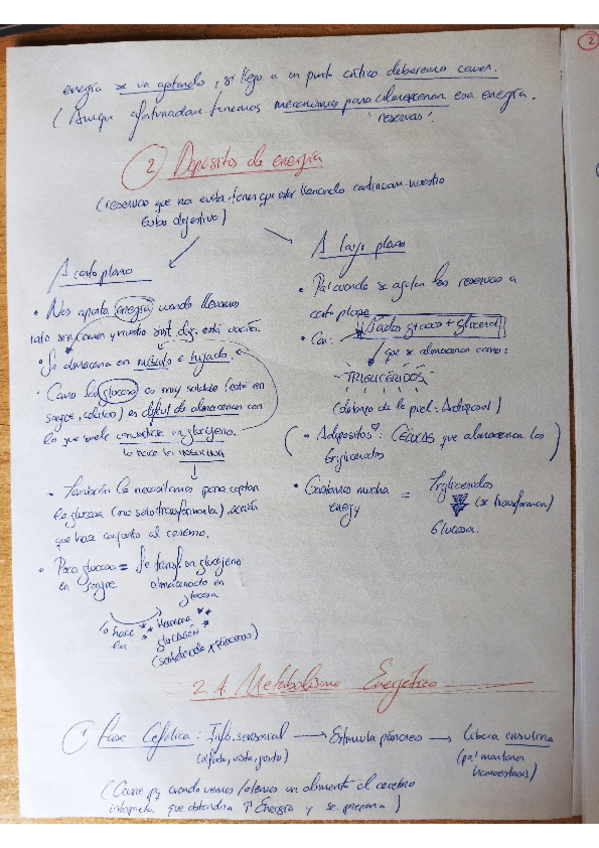 energía se va agotando, si llego a un punto crítico deberemos comer.
(Aunqu afortunadam. tenemos mecanismos para almacenar esa energía.
'reservas'.
2 Depósitos de energía
(reservas que nos evita tener que estar llenando continuam. nuestro
tubo digestivo)
A corto plazo
• Nos aporta energía cuando llevamos
rato sin comer y nuestro sist. dig. está vacío.
• Se almacena en músculo e hígado.
• Como la glucosa es muy soluble (está en
sangre, células) es difícil de almacenar con
lo que suele convertirse en glucógeno.
lo hace la insulina
• También la necesitamos para captar
la glucosa (no solo transformarla), acción
que hace conjunto al
• Poca glucosa = Se transf. en glucógeno
en sangre almacenado en
glucosa
lo hace la Hormona
glucagón
(sintetizada x páncreas)
A largo plazo
• Pa' cuando se agotan las reservas a
corto plazo
• Con: Ácidos grasos + glicerol
que se almacenan como:
- TRIGLICÉRIDOS -
(debajo de la piel: Adiposo)
(• Adipositos: CÉLULAS que almacenan los
triglicéridos)
• Gastamos mucha = Triglicéridos
energy (se transforman)
Glucosa.
2.1. Metabolismo Energético
1 Fase Cefálica: Info. sensorial → Estimula páncreas → Libera insulina
(olfato, vista, gusto) (pa' mantener
homeostasis)
(Ocurre pq cuando vemos/olemos un alimento el cerebro
interpreta que obtendrá ↑ Energía y se prepara)
2